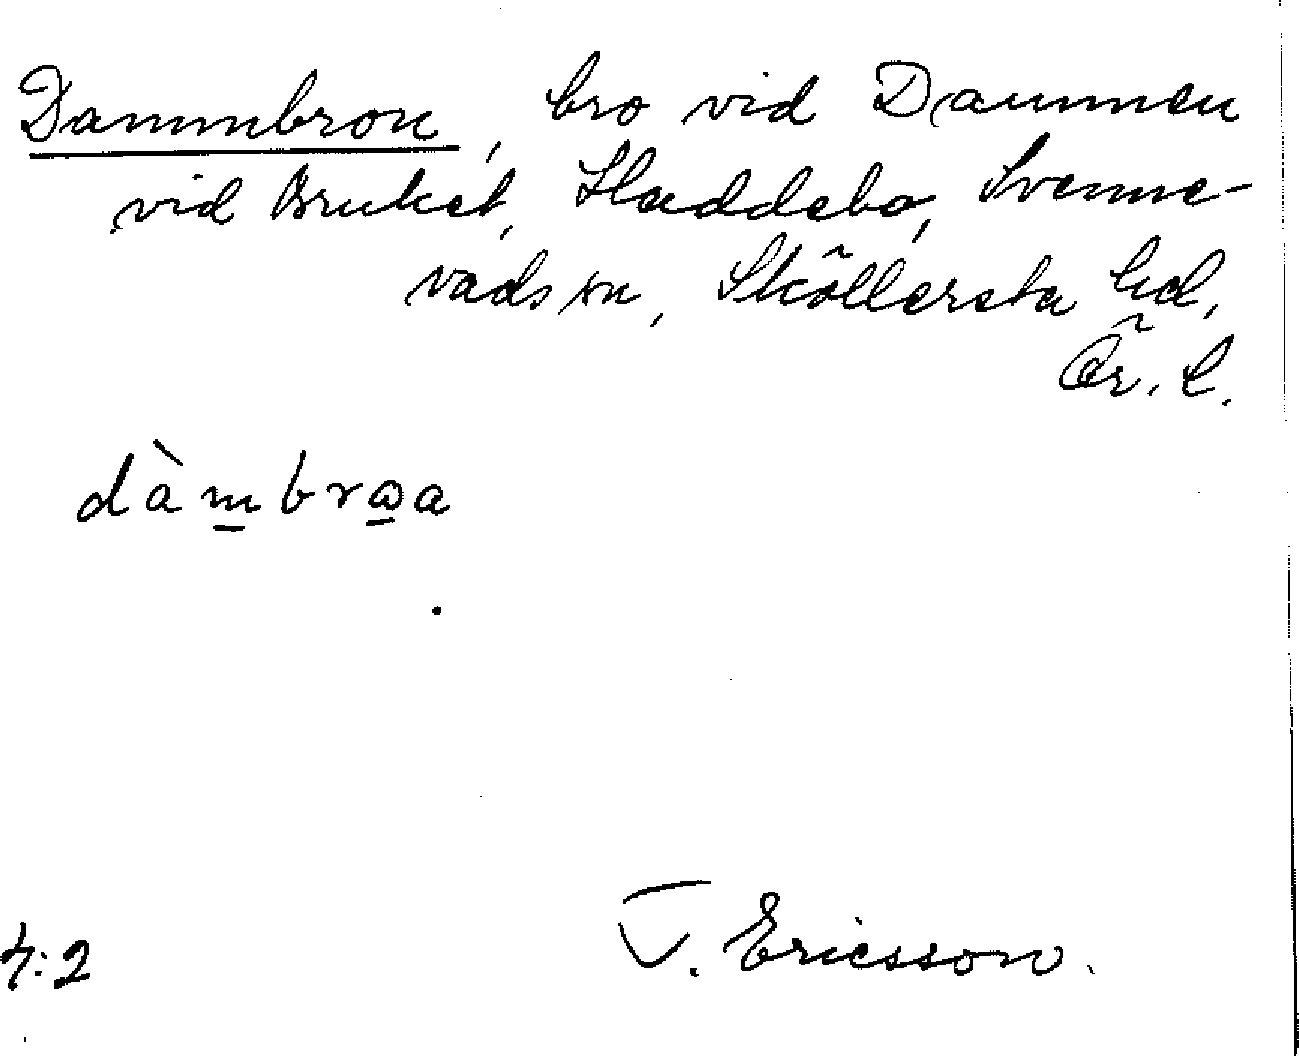 Dammbron, bro vid Dammen
vid Bruket, Haddebo, Svenne-
vads sn, Sköllersta hd,
Ör. l.
dàm̲brω̲a
4:2
T. Ericsson.